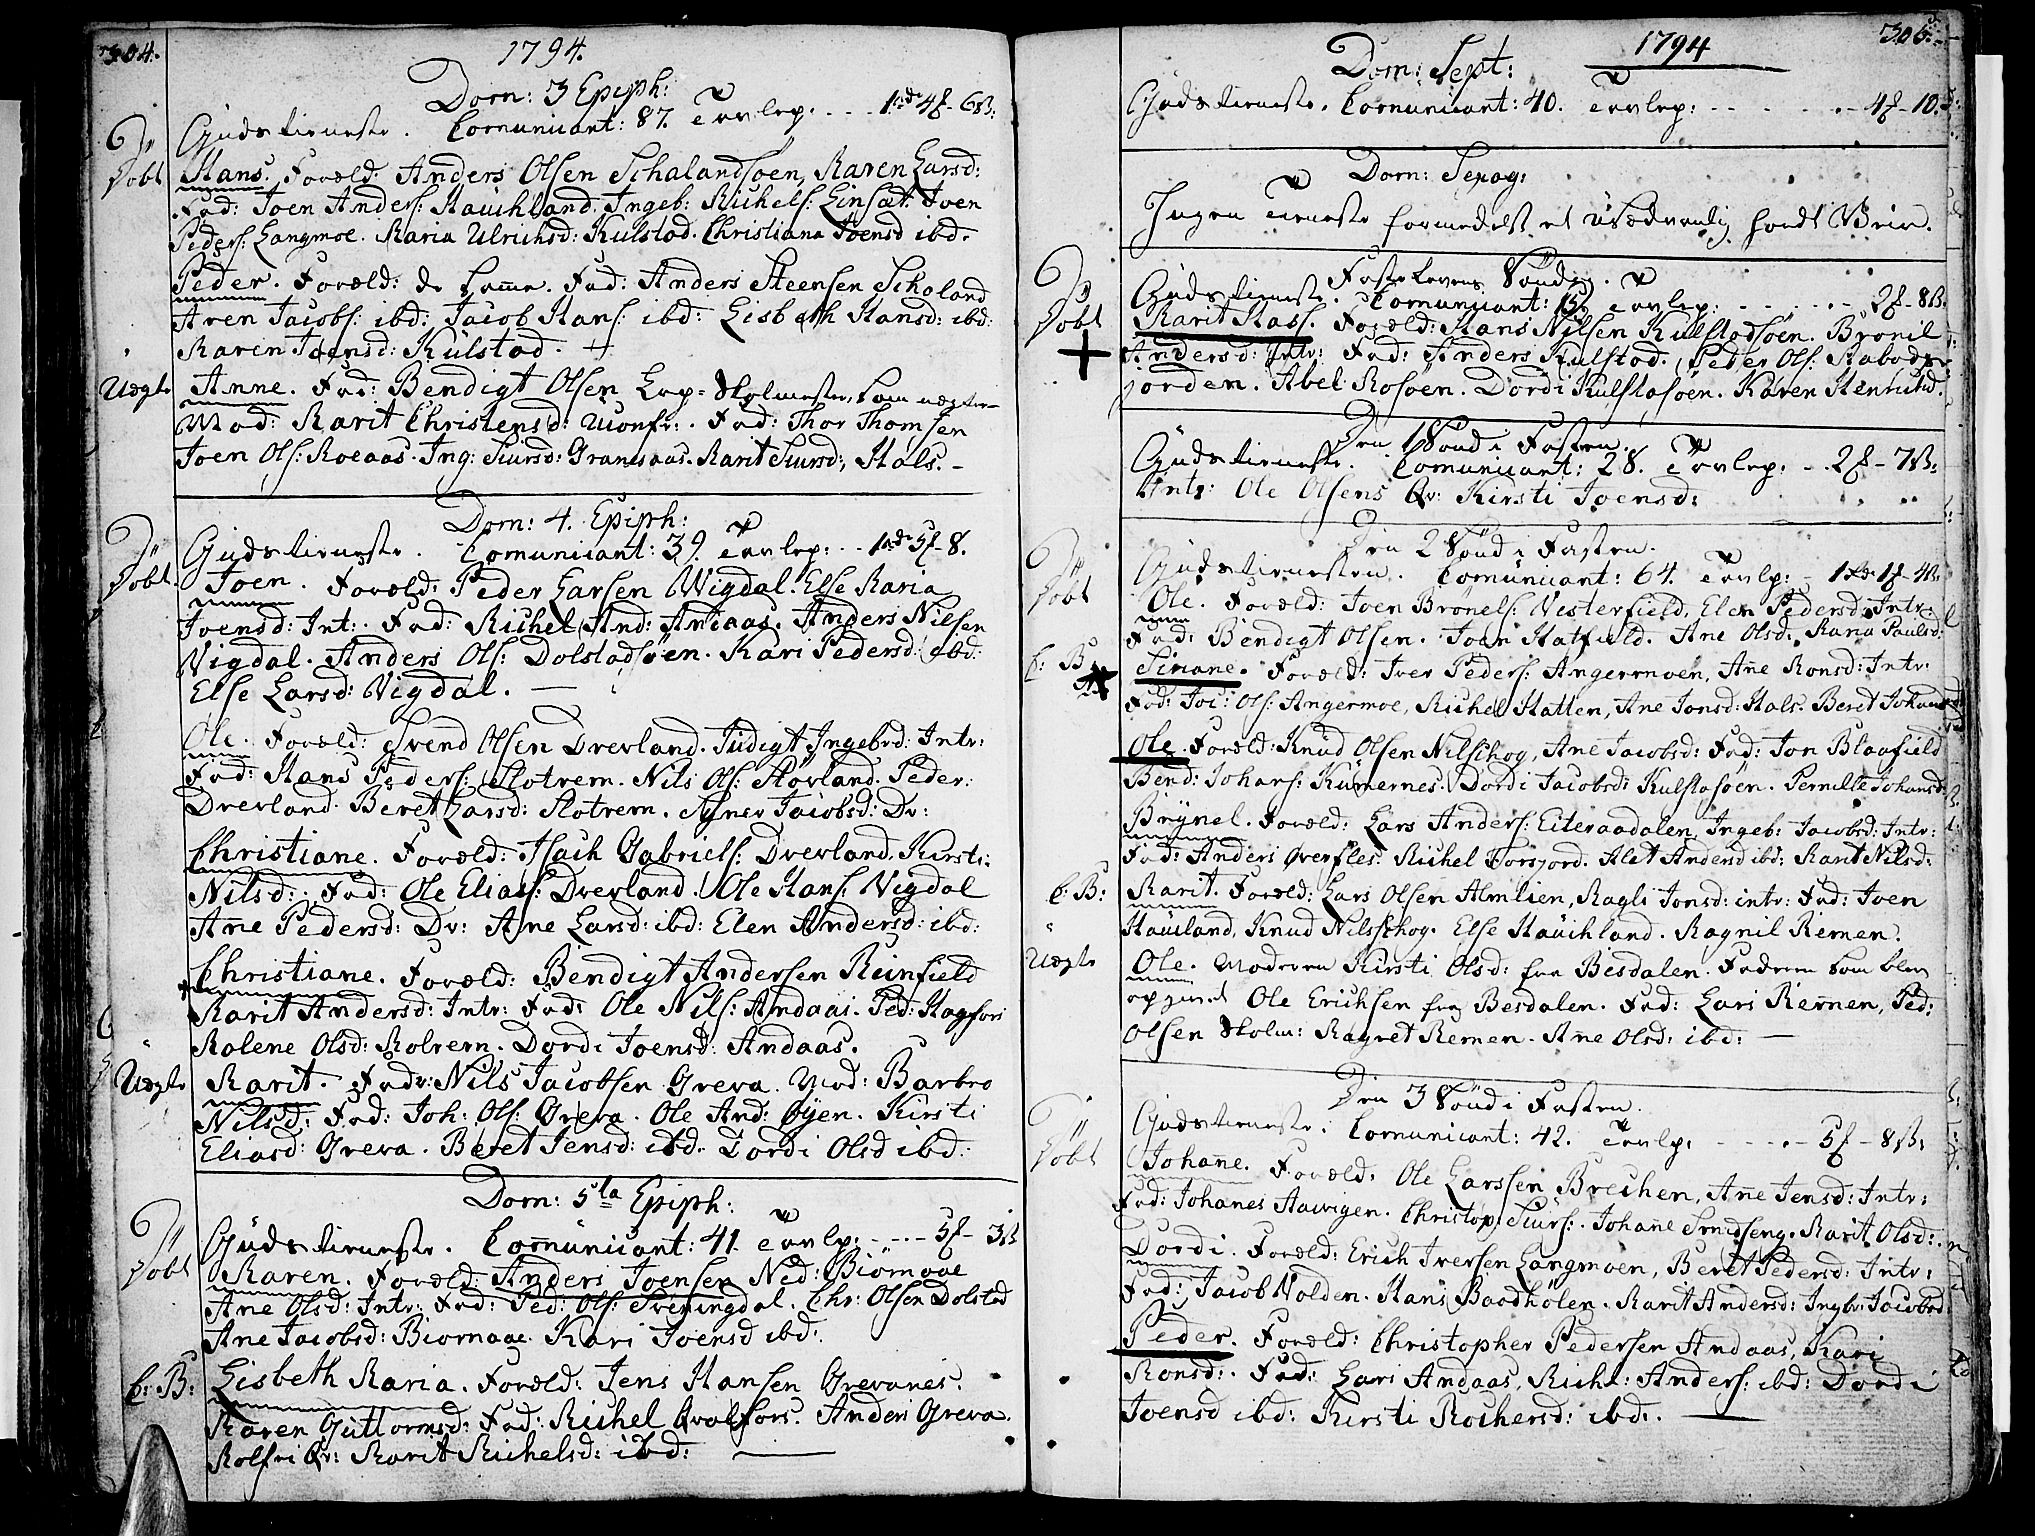 304.
1794.
Dom: 3 Epiph:
Gudstieneste. Comunicant: 87. Tavlep: ... 1rd 4ƒ - 6ß:
Døbt
Hans. Foræld: Anders Olsen Schalandsøen, Karen Larsd:
Fad: Joen Anders: Hauchland. Ingeb: Michels: Einsæt. Joen
Peders: Langmoe. Maria Ulrichsd: Kulstad. Christiana Joensd ibd.
Peder. Foræld: de samme. Fad: Anders Steensen Scholand
Aren Jacobs: ibd: Jacob Hans: ibd: Lisbeth Hansd: ibd:
Maren Joensd: Kulstad.
Uægte
Anne. Fad: Bendigt Olsen Lap-Skolmester, som
Mod: Marit Christensd: Fad: Thor Thomsen
Joen Ols: Roeaas. Ing: Siursd: Granesaas. Marit Siursd: Hals.
Dom: 4. Epiph:
Gudstieneste. Comunicant: 39. Tavlep: .. 1rd 5ƒ - 8.
Døbt.
Joen. Foræld: Peder Larsen Wigdal. Else Maria
Joensd: Int: Fad: Michel And: Andaas. Anders Nilsen
Vigdal. Anders Ols: Dolstadsøen. Kari Pedersd: ibd:
Else Larsd: Vigdal.
Ole. Foræld: Svend Olsen Drevland. Jüdigt Ingebrd: Intr:
Fad: Hans Peders: Slotrem. Nils Ols: Størland. Peder:
Drevland. Beret Larsd: Slotrem. Agner Jacobsd: Dr:
Christiane. Foræld: Isach Gabriels: Drevland. Kirsti:
Nilsd: Fad: Ole Elias: Drevland. Ole Hans: Vigdal
Ane Pedersd: Dr: Ane Larsd: ibd: Elen Andersd: ibd:
Christiane. Foræld: Bendigt Andersen Reinfield
Marit Andersd: Intr: Fad: Ole Nils: Andaas. Ped: Hagfors
Malene Olsd: Molrem. Dordi Joensd: Andaas.
Uægte
Marit. Fadr: Nils Jacobsen Greva. Mod: Barbro
Nilsd: Fad: Joh: Ols: Greva. Ole And: Øyen. Kirsti
Eliasd: Greva. Beret Jensd: ibd. Dordi Olsd ibd:
Dom: 5ta Epiph:
Gudstieneste. Comünicant: 41. Tavlp: ... 5ƒ - 3ß
Døbt
Karen. Foræld: Anders Joensen Ned: Biornaae
Ane Olsd: Intr: Fad: Ped: Ols: Svenningdal. Chr: Olsen Dolstad
Ane Jacobsd: Biornaae. Kari Joensd ibd:
C: B:
Lisbeth Maria. Foræld: Jens Hansen Grevanes.
Karen Guttormsd: Fad: Michel Qvalfors. Anders Greva.
Marit Michelsd: ibd:
305.
1794
Dom: Sept:
Gudstieneste. Comunicant: 40. Tavlep: ... 4ƒ - 10.
Dom: Sexag:
Ingen Tieneste formedelst et usædvanlig hardt Veir.
Fastelavens Søndag.
Gudstieneste. Comunicant: 15. Tavlep: ... 2ƒ - 8ß.
Døbt
Marit Hass. Foræld: Hans Nilsen Kulstadsøen. Brønil
Andersd: Intr: Fad: Anders Kulstad. Peder Ols:
jorden. Abel Rosøen. Dordi Kulstasøen. Karen
Den 1 Sönd i Fasten.
Gudstieneste. Comunicant: 28. Tavlep: .. 2ƒ - 7ß:
Intr: Ole Olsens Qv: Kirsti Joensd:
Den 2 Sönd i Fasten.
Gudstienesten. Comünicant: 64. Tavlp: 1rd 1ƒ - 4ß.
Døbt
Ole. Foræld: Joen Brønels: Vesterfield, Elen Pedersd: Intr:
Fad: Bendigt Olsen. Joen Hatfield. Ane Olsd. Maria Paulsd:
C: B
Siviane. Foræld: Iver Peders: Angermoen, Ane Monsd: Intr:
Fad: Joc: Ols: Angermoe, Michel Hatten, Ane Jonsd: Hals. Beret Johans
Ole. Foræld: Knud Olsen Nilschog, Ane Jacobsd: Fad: Jon Blaafield
Bend: Johans: Kunernes. Dordi Jacobsd: Kulstasøen. Pernille Johansd:
Brynel. Foræld: Lars Anders: Eiteraadalen, Ingeb: Jacobsd: Intr:
Fad: Anders Øverfles. Michel Forsjord. Alet Andersd ibd: Marit Nilsd:
C: B:
Marit. Foræld: Lars Olsen Almlien, Magli Jonsd: intr: Fad: Joen
Hauland, Knud Nilsschog. Else Hauchland. Ragnil Remen.
Uægte
Ole. Moderen Kirsti Olsd: fra Besdalen. Faderen som blev
opgivet Ole Erichsen fra Besdalen. Fad: Lars Remen, Ped:
Olsen Skolm: Magret Remen. Ane Olsd: ibd:
Den 3 Sönd i Fasten.
Gudstieneste. Comunicant: 42. Tavlp: ... 5ƒ - 8ß:
Døbt
Johane. Foræld: Ole Larssen Brechen, Ane Jensd: Intr:
Fad: Johanes Havigen. Christop: Siurs: Johane Smedseng. Marit Olsd:
Dordi. Foræld: Erich Iversen Langmoen, Beret Pedersd: Intr:
Fad: Jacob Volden. Hans Baadhølen. Marit Andersd: Ingbr: Jacobsd:
Peder. Foræld: Christopher Pedersen Andaas, Kari
Monsd: Fad: Lars Andaas, Mich: Anders: ibd: Dordi
Joensd ibd: Kirsti Mochersd: ibd: